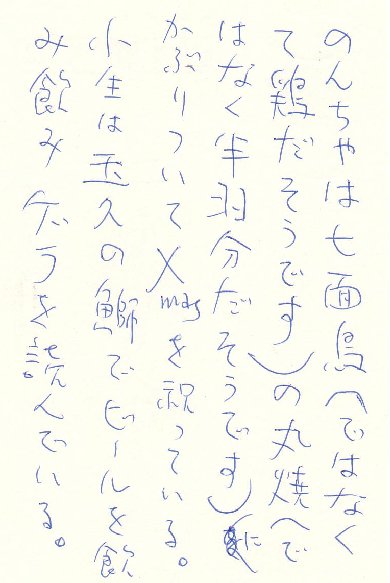 のんちゃは七面鳥(ではなく
て鶏だそうです)の丸焼(で
はなく半羽分だそうです)に
かぶりついてXmasを祝っている。
小生は玉久の鰤でビールを飲
み飲みゲラを読んでいる。